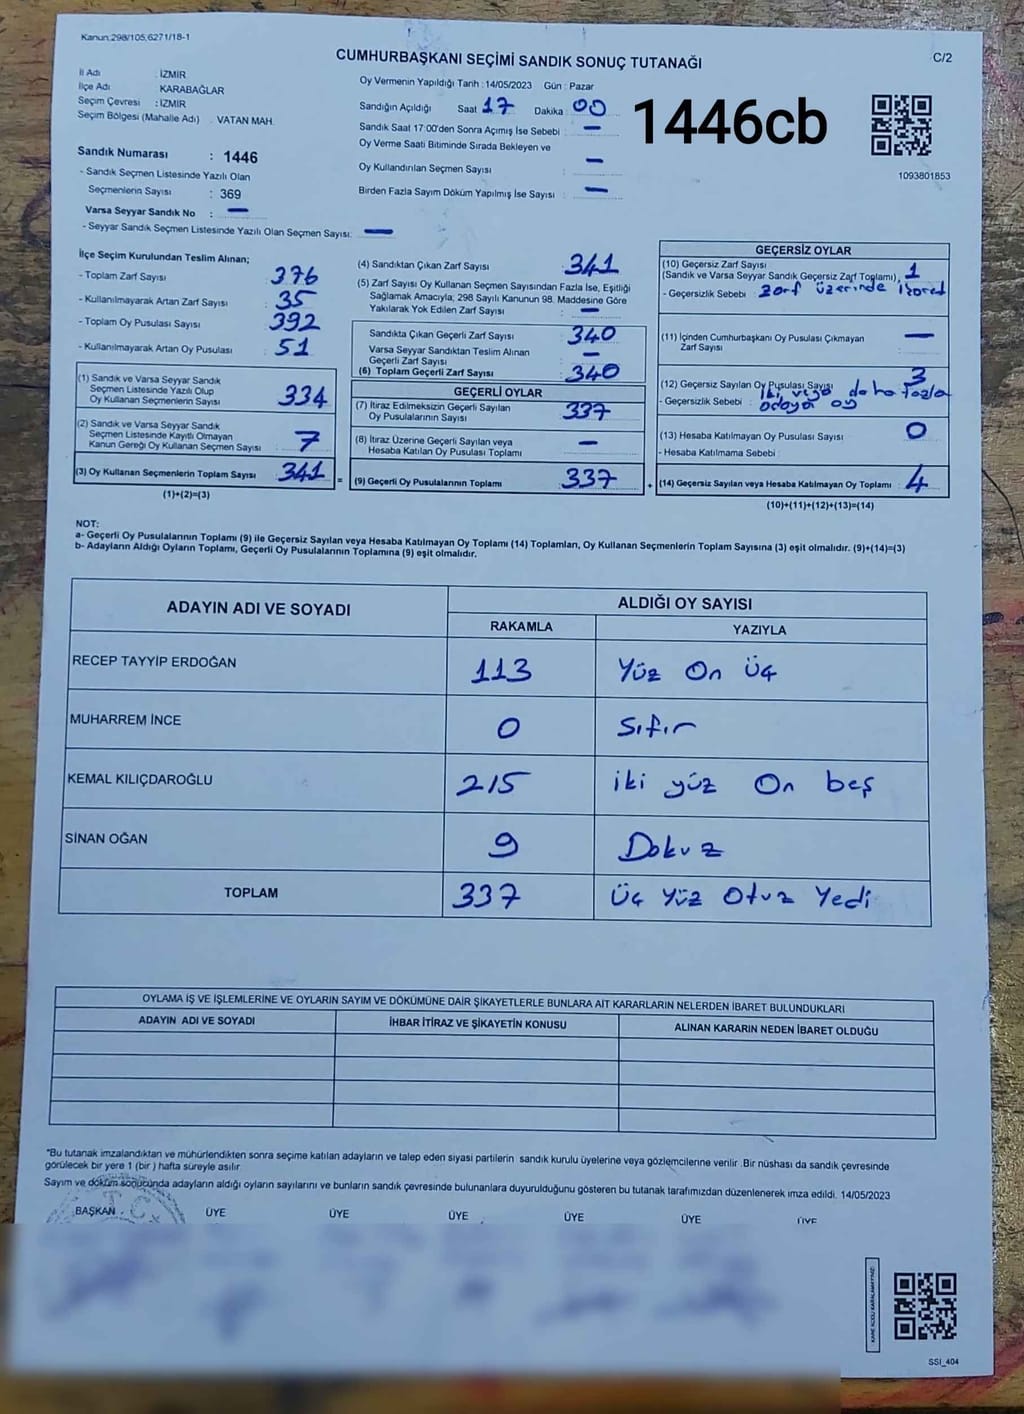 Kanun:298/105,6271/18-1
CUMHURBAŞKANI SEÇİMİ SANDIK SONUÇ TUTANAĞI
C/2
İl Adı : İZMİR
İlçe Adı KARABAĞLAR
Seçim Çevresi : İZMİR
Seçim Bölgesi (Mahalle Adı) . VATAN MAH.
Sandık Numarası : 1446
- Sandık Seçmen Listesinde Yazılı Olan
Seçmenlerin Sayısı : 369
Varsa Seyyar Sandık No : —
- Seyyar Sandık Seçmen Listesinde Yazılı Olan Seçmen Sayısı: —
Oy Vermenin Yapıldığı Tarih : 14/05/2023 Gün : Pazar
Sandığın Açıldığı Saat 17 Dakika 00
Sandık Saat 17:00'den Sonra Açımış İse Sebebi : —
Oy Verme Saati Bitiminde Sırada Bekleyen ve
Oy Kullandırılan Seçmen Sayısı : —
Birden Fazla Sayım Döküm Yapılmış İse Sayısı : —
1446cb
1093801853
İlçe Seçim Kurulundan Teslim Alınan;
- Toplam Zarf Sayısı : 376
- Kullanılmayarak Artan Zarf Sayısı : 35
- Toplam Oy Pusulası Sayısı : 392
- Kullanılmayarak Artan Oy Pusulası : 51
(1) Sandık ve Varsa Seyyar Sandık
Seçmen Listesinde Yazılı Olup
Oy Kullanan Seçmenlerin Sayısı : 334
(2) Sandık ve Varsa Seyyar Sandık
Seçmen Listesinde Kayıtlı Olmayan
Kanun Gereği Oy Kullanan Seçmen Sayısı : 7
(3) Oy Kullanan Seçmenlerin Toplam Sayısı : 341 =
(1)+(2)=(3)
(4) Sandıktan Çıkan Zarf Sayısı : 341
(5) Zarf Sayısı Oy Kullanan Seçmen Sayısından Fazla İse, Eşitliği
Sağlamak Amacıyla; 298 Sayılı Kanunun 98. Maddesine Göre
Yakılarak Yok Edilen Zarf Sayısı : —
Sandıkta Çıkan Geçerli Zarf Sayısı : 340
Varsa Seyyar Sandıktan Teslim Alınan
Geçerli Zarf Sayısı : —
(6) Toplam Geçerli Zarf Sayısı : 340
GEÇERLİ OYLAR
(7) İtiraz Edilmeksizin Geçerli Sayılan
Oy Pusulalarının Sayısı : 337
(8) İtiraz Üzerine Geçerli Sayılan veya
Hesaba Katılan Oy Pusulası Toplamı : —
(9) Geçerli Oy Pusulalarının Toplamı : 337 +
GEÇERSİZ OYLAR
(10) Geçersiz Zarf Sayısı
(Sandık ve Varsa Seyyar Sandık Geçersiz Zarf Toplamı), 1
- Geçersizlik Sebebi : zarf üzerinde
(11) İçinden Cumhurbaşkanı Oy Pusulası Çıkmayan
Zarf Sayısı —
(12) Geçersiz Sayılan Oy Pusulası Sayısı 3
- Geçersizlik Sebebi : iki veya daha fazla
adaya oy
(13) Hesaba Katılmayan Oy Pusulası Sayısı 0
- Hesaba Katılmama Sebebi :
(14) Geçersiz Sayılan veya Hesaba Katılmayan Oy Toplamı : 4
(10)+(11)+(12)+(13)=(14)
NOT:
a- Geçerli Oy Pusulalarının Toplamı (9) ile Geçersiz Sayılan veya Hesaba Katılmayan Oy Toplamı (14) Toplamları, Oy Kullanan Seçmenlerin Toplam Sayısına (3) eşit olmalıdır. (9)+(14)=(3)
b- Adayların Aldığı Oyların Toplamı, Geçerli Oy Pusulalarının Toplamına (9) eşit olmalıdır.
ADAYIN ADI VE SOYADI
ALDIĞI OY SAYISI
RAKAMLA YAZIYLA
RECEP TAYYİP ERDOĞAN 113 Yüz On Üç
MUHARREM İNCE 0 Sıfır
KEMAL KILIÇDAROĞLU 215 iki yüz On beş
SİNAN OĞAN 9 Dokuz
TOPLAM 337 Üç Yüz Otuz Yedi
OYLAMA İŞ VE İŞLEMLERİNE VE OYLARIN SAYIM VE DÖKÜMÜNE DAİR ŞİKAYETLERLE BUNLARA AİT KARARLARIN NELERDEN İBARET BULUNDUKLARI
ADAYIN ADI VE SOYADI İHBAR İTİRAZ VE ŞİKAYETİN KONUSU ALINAN KARARIN NEDEN İBARET OLDUĞU
"Bu tutanak imzalandıktan ve mühürlendikten sonra seçime katılan adayların ve talep eden siyasi partilerin sandık kurulu üyelerine veya gözlemcilerine verilir .Bir nüshası da sandık çevresinde
görülecek bir yere 1 (bir ) hafta süreyle asılır.
Sayım ve döküm sonucunda adayların aldığı oyların sayılarını ve bunların sandık çevresinde bulunanlara duyurulduğunu gösteren bu tutanak tarafımızdan düzenlenerek imza edildi. 14/05/2023
BAŞKAN ÜYE ÜYE ÜYE ÜYE ÜYE ÜYE
SSI_404